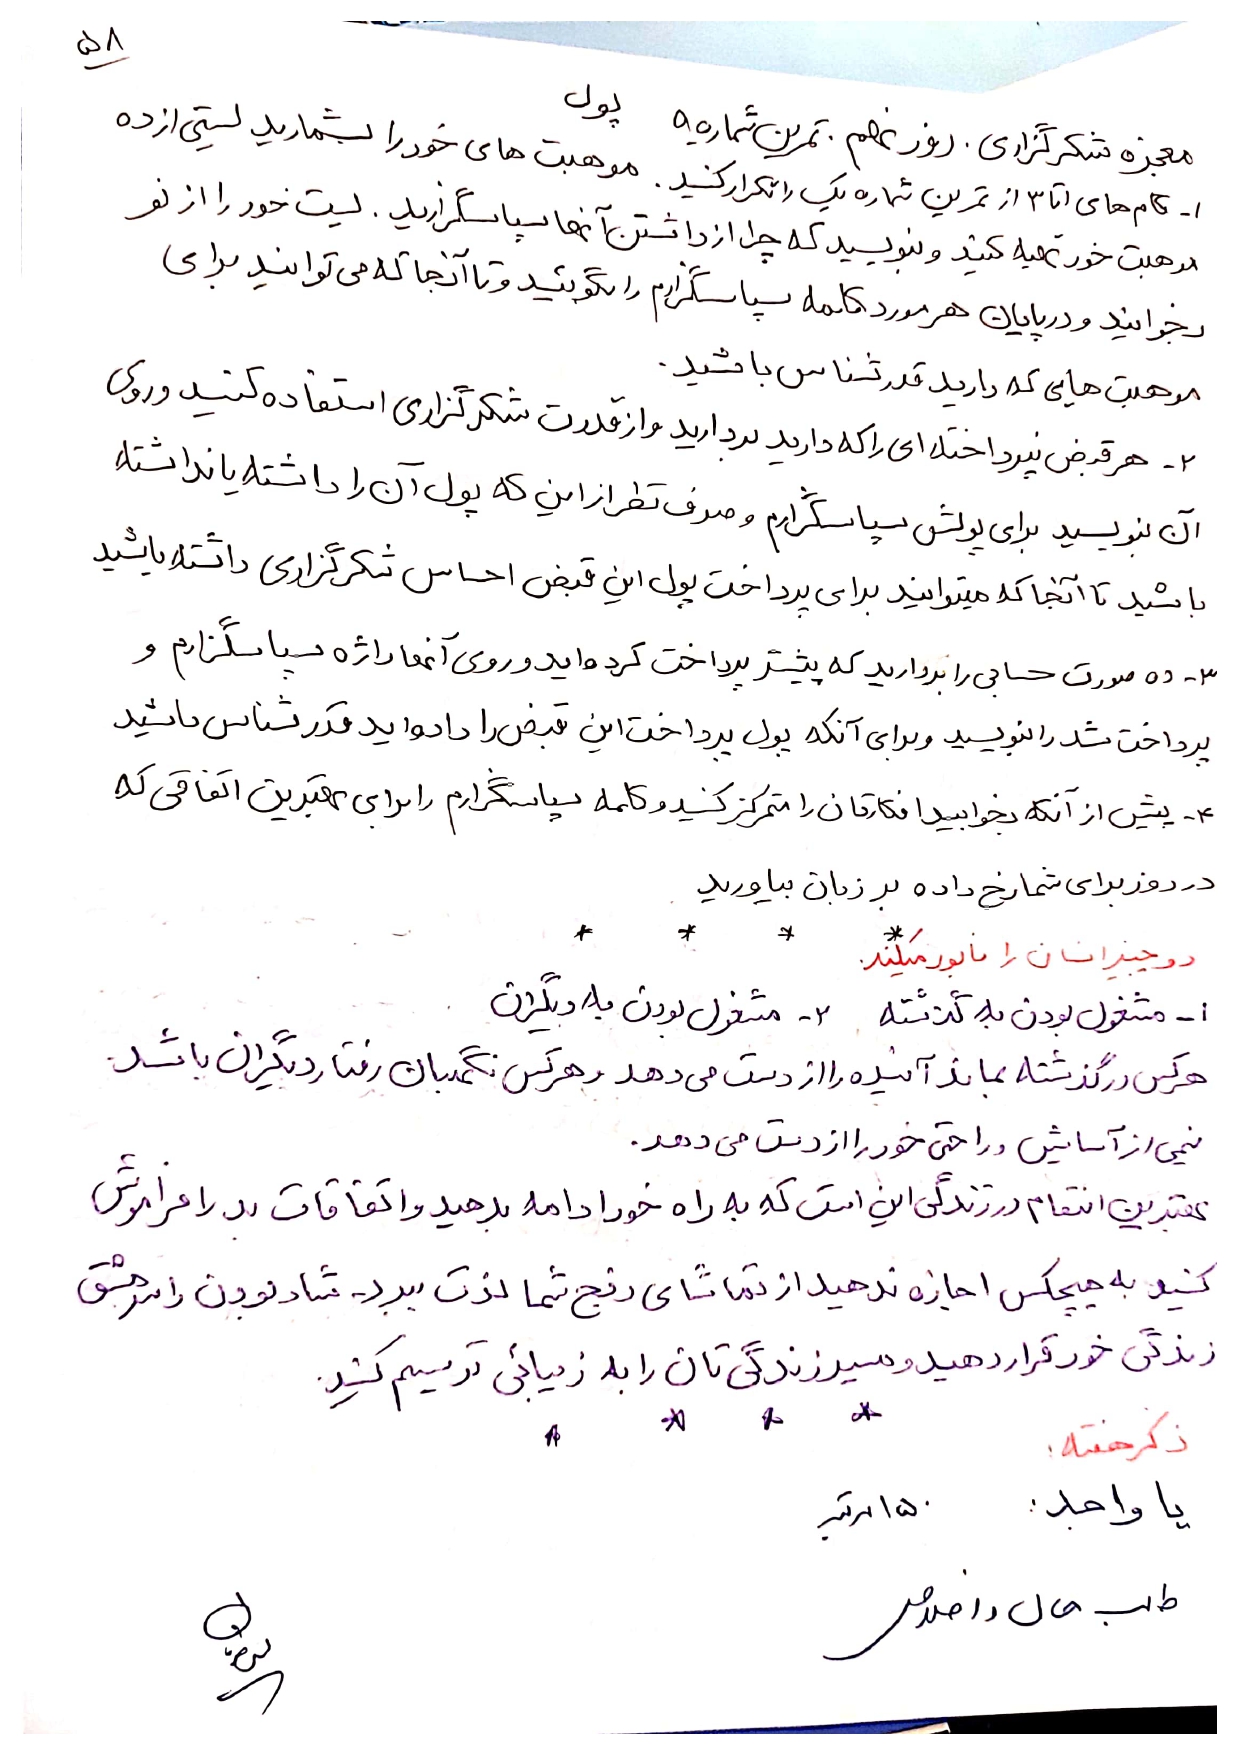 ۵۸
معجزه شکرگزاری . روز نهم . تمرین شماره ۹ پول
۱- گام های ۱ تا ۳ از تمرین شماره یک را تکرار کنید . موهبت های خود را بشمارید لیستی از ده
موهبت خود تهیه کنید و بنویسید که چرا از داشتن آنها سپاسگزارید . لیست خود را از نو
بخوانید و در پایان هر مورد کلمه سپاسگزارم را بگوئید و تا آنجا که می توانید برای
موهبت هایی که دارید قدرشناس باشید .
۲- هر قبض نپرداخته ای را که دارید بردارید و از قدرت شکرگزاری استفاده کنید و روی
آن بنویسید برای پولش سپاسگزارم و صرف نظر از این که پول آن را داشته یا نداشته
باشید تا آنجا که میتوانید برای پرداخت پول این قبض احساس شکرگزاری داشته باشید
۳- ده صورت حسابی را بردارید که پیشتر پرداخت کرده اید و روی آنها واژه سپاسگزارم و
پرداخت شد را بنویسید و برای آنکه پول پرداخت این قبض را داده اید قدرشناس باشید
۴- پیش از آنکه بخوابید افکارتان را متمرکز کنید و کلمه سپاسگزارم را برای بهترین اتفاقی که
در روز برای شما رخ داده بر زبان بیاورید
* * * *
دو چیز انسان را نابود میکند.
۱- مشغول بودن به گذشته ۲- مشغول بودن به دیگران
هرکس در گذشته بماند آینده را از دست می دهد و هرکس نگهبان رفتار دیگران باشد.
نیمی از آسایش و راحتی خود را از دست می دهد.
بهترین انتقام در زندگی این است که به راه خود ادامه بدهید و اتفاقات بد را فراموش
کنید به هیچکس اجازه ندهید از تماشای رنج شما لذت ببرد - شاد بودن را سرمشق
زندگی خود قرار دهید و مسیر زندگی تان را به زیبائی ترسیم کنید.
* * * *
ذکر هفته :
یا واحد : ۱۵۰ مرتبه